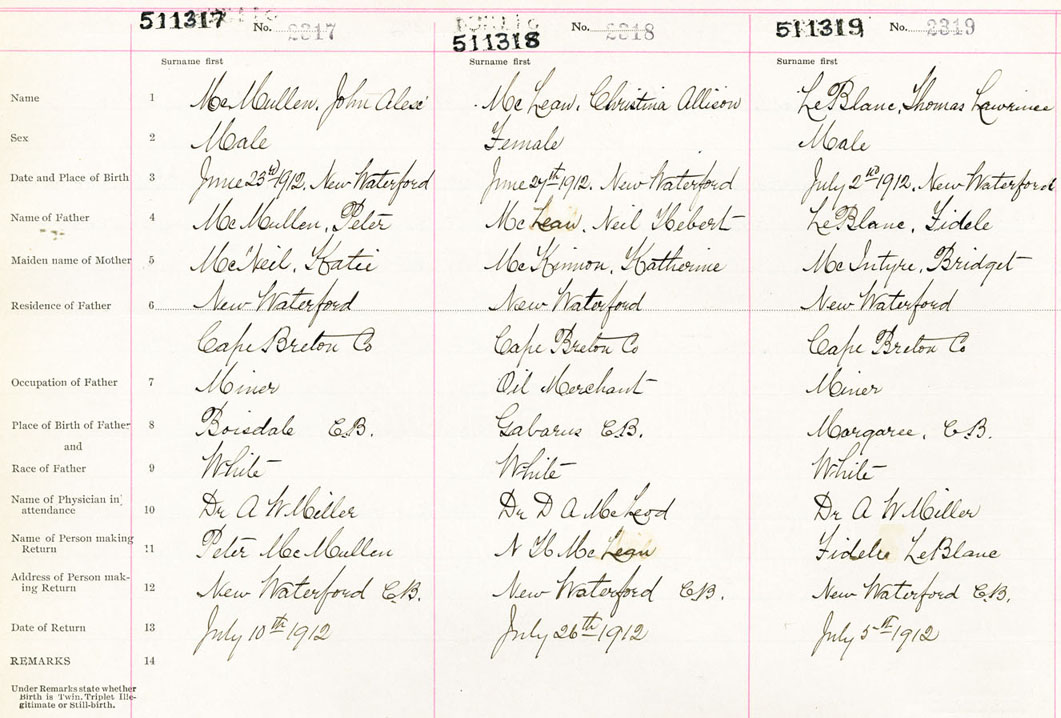 511317 No. 2317 511318 No. 2318 511319 No. 2319
Surname first Surname first Surname first
Name 1 McMullen, John Alex' McLean, Christina Allison LeBlanc, Thomas Lawrince
Sex 2 Male Female Male
Date and Place of Birth 3 June 23rd 1912. New Waterford June 27th 1912. New Waterford July 2nd 1912. New Waterford
Name of Father 4 McMullen, Peter McLean, Neil Hebert LeBlanc, Fidele
Maiden name of Mother 5 McNeil, Katie McKinnon, Katherine McIntyre, Bridget
Residence of Father 6 New Waterford New Waterford New Waterford
Cape Breton Co Cape Breton Co Cape Breton Co
Occupation of Father 7 Miner Oil Merchant Miner
Place of Birth of Father 8 Boisdale C.B. Gabarus C.B. Margaree, C.B.
and
Race of Father 9 White White White
Name of Physician in attendance 10 Dr A W Miller Dr D A McLeod Dr A W Miller
Name of Person making Return 11 Peter McMullen N H McLean Fidele LeBlanc
Address of Person mak-ing Return 12 New Waterford C.B. New Waterford C.B. New Waterford C.B.
Date of Return 13 July 10th 1912 July 26th 1912 July 5th 1912
REMARKS 14
Under Remarks state whether
Birth is Twin, Triplet Ille-
gitimate or Still-birth.